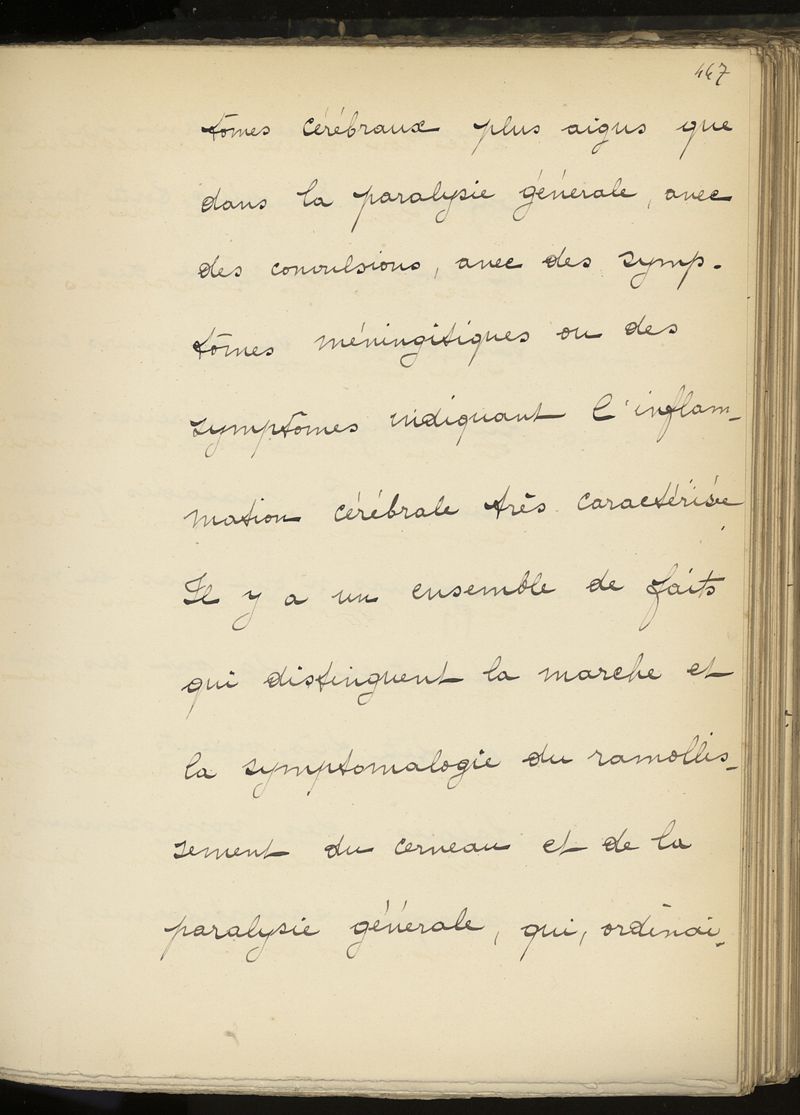 447
tômes cérébraux plus aigus que
dans la paralysie générale, avec
des convulsions, avec des symp-
tômes méningitiques ou des
symptômes indiquant l'inflam-
mation cérébrale très caractérisée.
Il y a un ensemble de faits
qui distinguent la marche et
la symptomalogie du ramollis-
sement du cerveau et de la
paralysie générale, qui, ordinai-